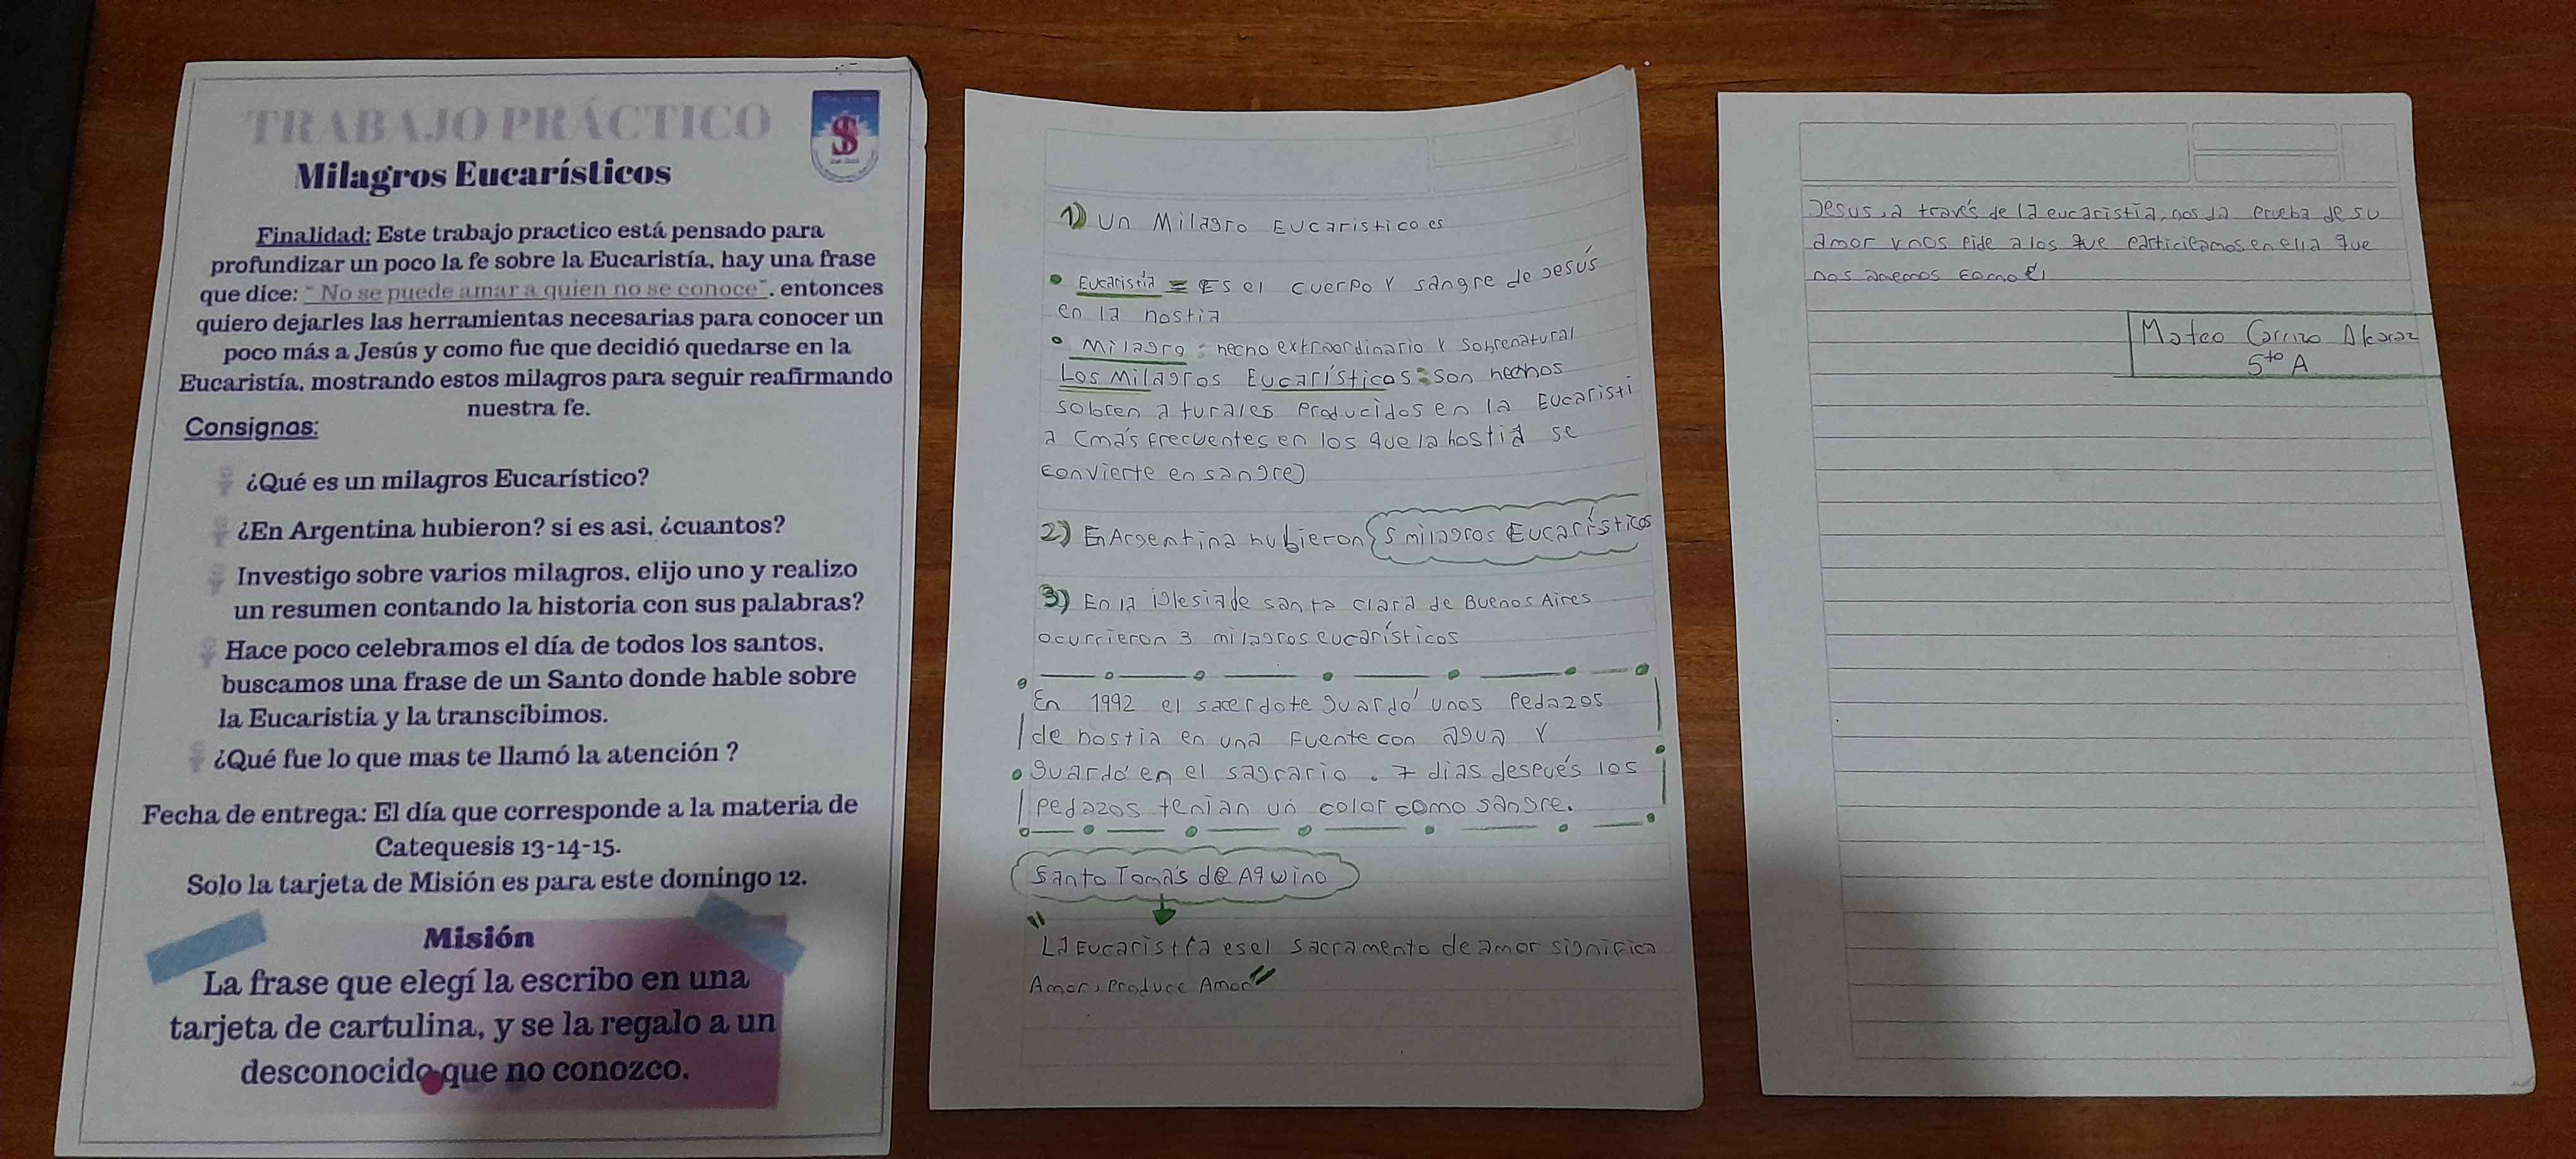 TRABAJO PRÁCTICO
Milagros Eucarísticos
Finalidad: Este trabajo practico está pensado para
profundizar un poco la fe sobre la Eucaristía, hay una frase
que dice: " No se puede amar a quien no se conoce", entonces
quiero dejarles las herramientas necesarias para conocer un
poco más a Jesús y como fue que decidió quedarse en la
Eucaristía, mostrando estos milagros para seguir reafirmando
nuestra fe.
Consignas:
¿Qué es un milagros Eucarístico?
¿En Argentina hubieron? si es asi, ¿cuantos?
Investigo sobre varios milagros, elijo uno y realizo
un resumen contando la historia con sus palabras?
Hace poco celebramos el día de todos los santos,
buscamos una frase de un Santo donde hable sobre
la Eucaristia y la transcibimos.
¿Qué fue lo que mas te llamó la atención ?
Fecha de entrega: El día que corresponde a la materia de
Catequesis 13-14-15.
Solo la tarjeta de Misión es para este domingo 12.
Misión
La frase que elegí la escribo en una
tarjeta de cartulina, y se la regalo a un
desconocido que no conozco.
1) Un Milagro Eucaristico es
Eucaristía = Es el cuerpo y sangre de Jesús
en la hostia
Milagro: hecho extraordinario y sobrenatural
Los Milagros Eucarísticos: son hechos
sobren a turales producidos en la Eucaristi
a (más frecuentes en los que la hostia se
convierte en sangre)
2) En Argentina hubieron 5 milagros Eucarísticos
3) En la iglesia de santa clara de Buenos Aires
ocurrieron 3 milagros eucarísticos
En 1992 el sacerdote guardó unos pedazos
de hostia en una fuente con agua y
guardó en el sagrario. 7 dias después los
pedazos tenían un color como sangre.
Santo Tomás de Aquino
"La Eucaristía es el sacramento de amor significa
Amor, produce Amor"
Jesus, a través de la eucaristía, nos da prueba de su
amor y nos pide a los que participamos en ella que
nos amemos como él
Mateo Carrizo Alcaraz
5to A